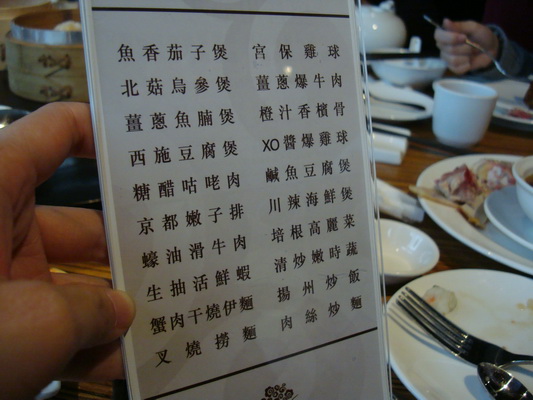 魚香茄子煲
北菇烏參煲
薑蔥魚腩煲
西施豆腐煲
糖醋咕咾肉
京都嫩子排
蠔油滑牛肉
生抽活鮮蝦
蟹肉干燒伊麵
叉燒撈麵
宮保雞球
薑蔥爆牛肉
橙汁香檳骨
XO醬爆雞球
鹹魚豆腐煲
川辣海鮮煲
培根高麗菜
清炒嫩時蔬
揚州炒飯
肉絲炒麵